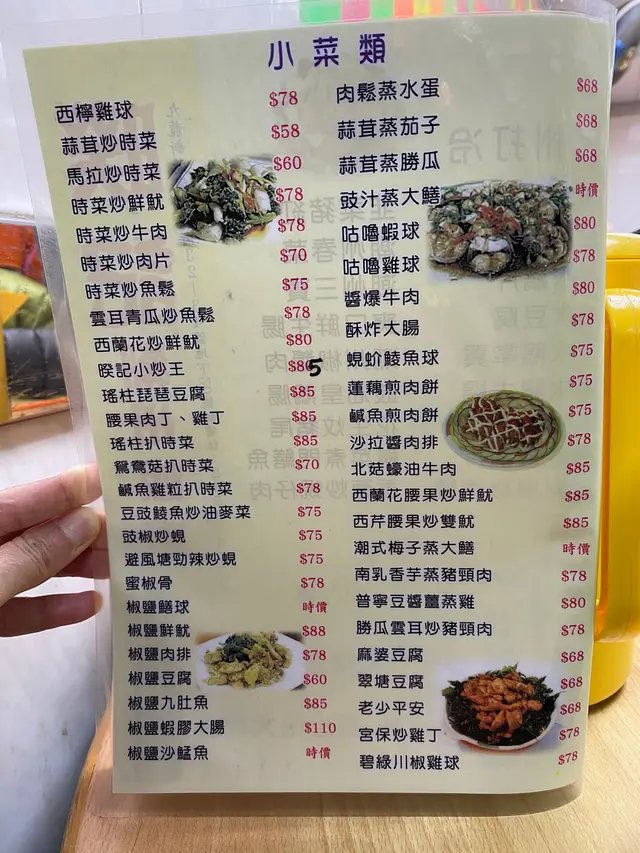 小菜類
西檸雞球 $78
蒜茸炒時菜 $58
馬拉炒時菜 $60
時菜炒鮮魷 $78
時菜炒牛肉 $78
時菜炒肉片 $70
時菜炒魚鬆 $75
雲耳青瓜炒魚鬆 $78
西蘭花炒鮮魷 $80
暌記小炒王 $85
瑤柱琵琶豆腐 $85
腰果肉丁、雞丁 $85
瑤柱扒時菜 $85
鴛鴦菇扒時菜 $70
鹹魚雞粒扒時菜 $78
豆豉鯪魚炒油麥菜 $75
豉椒炒蜆 $75
避風塘勁辣炒蜆 $75
蜜椒骨 $78
椒鹽鱔球 時價
椒鹽鮮魷 $88
椒鹽肉排 $78
椒鹽豆腐 $60
椒鹽九肚魚 $85
椒鹽蝦膠大腸 $110
椒鹽沙鯭魚 時價
肉鬆蒸水蛋 $68
蒜茸蒸茄子 $68
蒜茸蒸勝瓜 $68
豉汁蒸大鱔 時價
咕嚕蝦球 $80
咕嚕雞球 $78
醬爆牛肉 $80
酥炸大腸 $78
蜆蚧鯪魚球 $75
蓮藕煎肉餅 $75
鹹魚煎肉餅 $75
沙拉醬肉排 $78
北菇蠔油牛肉 $85
西蘭花腰果炒鮮魷 $85
西芹腰果炒雙魷 $85
潮式梅子蒸大鱔 時價
南乳香芋蒸豬頸肉 $78
普寧豆醬薑蒸雞 $80
勝瓜雲耳炒豬頸肉 $78
麻婆豆腐 $68
翠塘豆腐 $68
老少平安 $68
宮保炒雞丁 $78
碧綠川椒雞球 $78